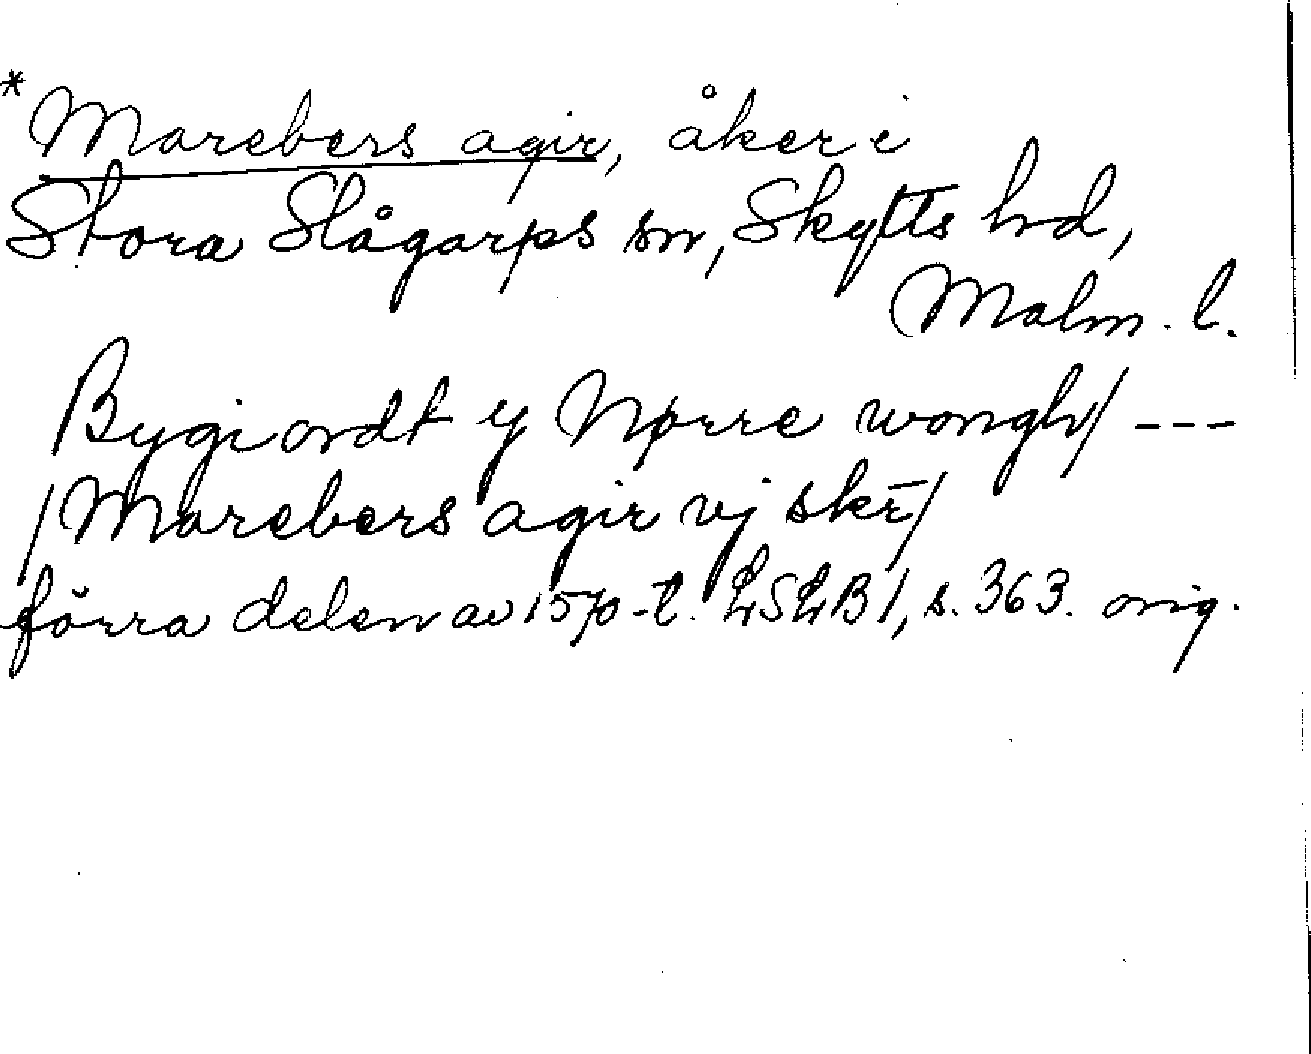 *Marebers agir, åker i
Stora Slågarps sn, Skytts hd,
Malm. l.
Bygiordt y Nørre wongh/ ---
/Marebers agir vj skr̄/
förra delen av 1570-t. LSLB1, s. 363. orig.